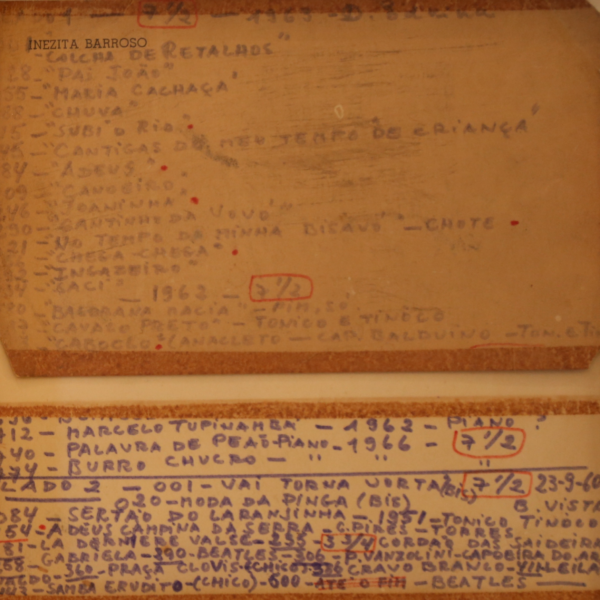 7 1/2 - 1963 - D.
INEZITA BARROSO
COLCHA DE RETALHOS"
28 - "PAI JOÃO"
55 - "MARIA CACHAÇA"
88 - "CHUVA"
15 - "SUBI O RIO"
45 - "CANTIGAS DO MEU TEMPO DE CRIANÇA"
84 - "ADEUS"
09 - "CANOEIRO"
46 - "JOANINHA"
90 - "CANTINHO DA VOVÓ"
21 - "NO TEMPO DA MINHA BISAVÓ" - CHOTE
"CHEGA CHEGA"
"INGAZEIRO"
"SACI"
- 1962 - 7 1/2
MACIA" - FIM, 20.
"CAVACO PRETO" - TONICO E TINOCO
"CABOCLO" (ANACLETO - CAP. BALDUINO - TON. E TI
712 - MARCELO TUPINAMBÁ - 1962 - PIANO
740 - PALAVRA DE PEÃO-PIANO - 1966 - 7 1/2
774 - BURRO CHUCRO - " " "
LADO 2 - 001 - VAI TORNA VORTÁ (BIS) 7 1/2 23-9-60
020 - MODA DA PINGA (BIS) B. VISTA
084 - SERTÃO DO LARANJINHA - 1951 - TONICO TINOCO
54 - ADEUS CAMPINA DA SERRA - C. PIRES - TORRES
LA DERNIERE VALSE - 235 - 3 3/4 CORDÃO DA SAIDEIRA
GABRIELA - 390 - BEATLES - 306 - P. VANZOLINI - CAPOEIRA DO AR
360 - PRAÇA CLOVIS (CHICO) - 336 CRAVO BRANCO - VILLEILA
SAMBA ERUDITO - (CHICO) - 600 - ATÉ O FIM - BEATLES